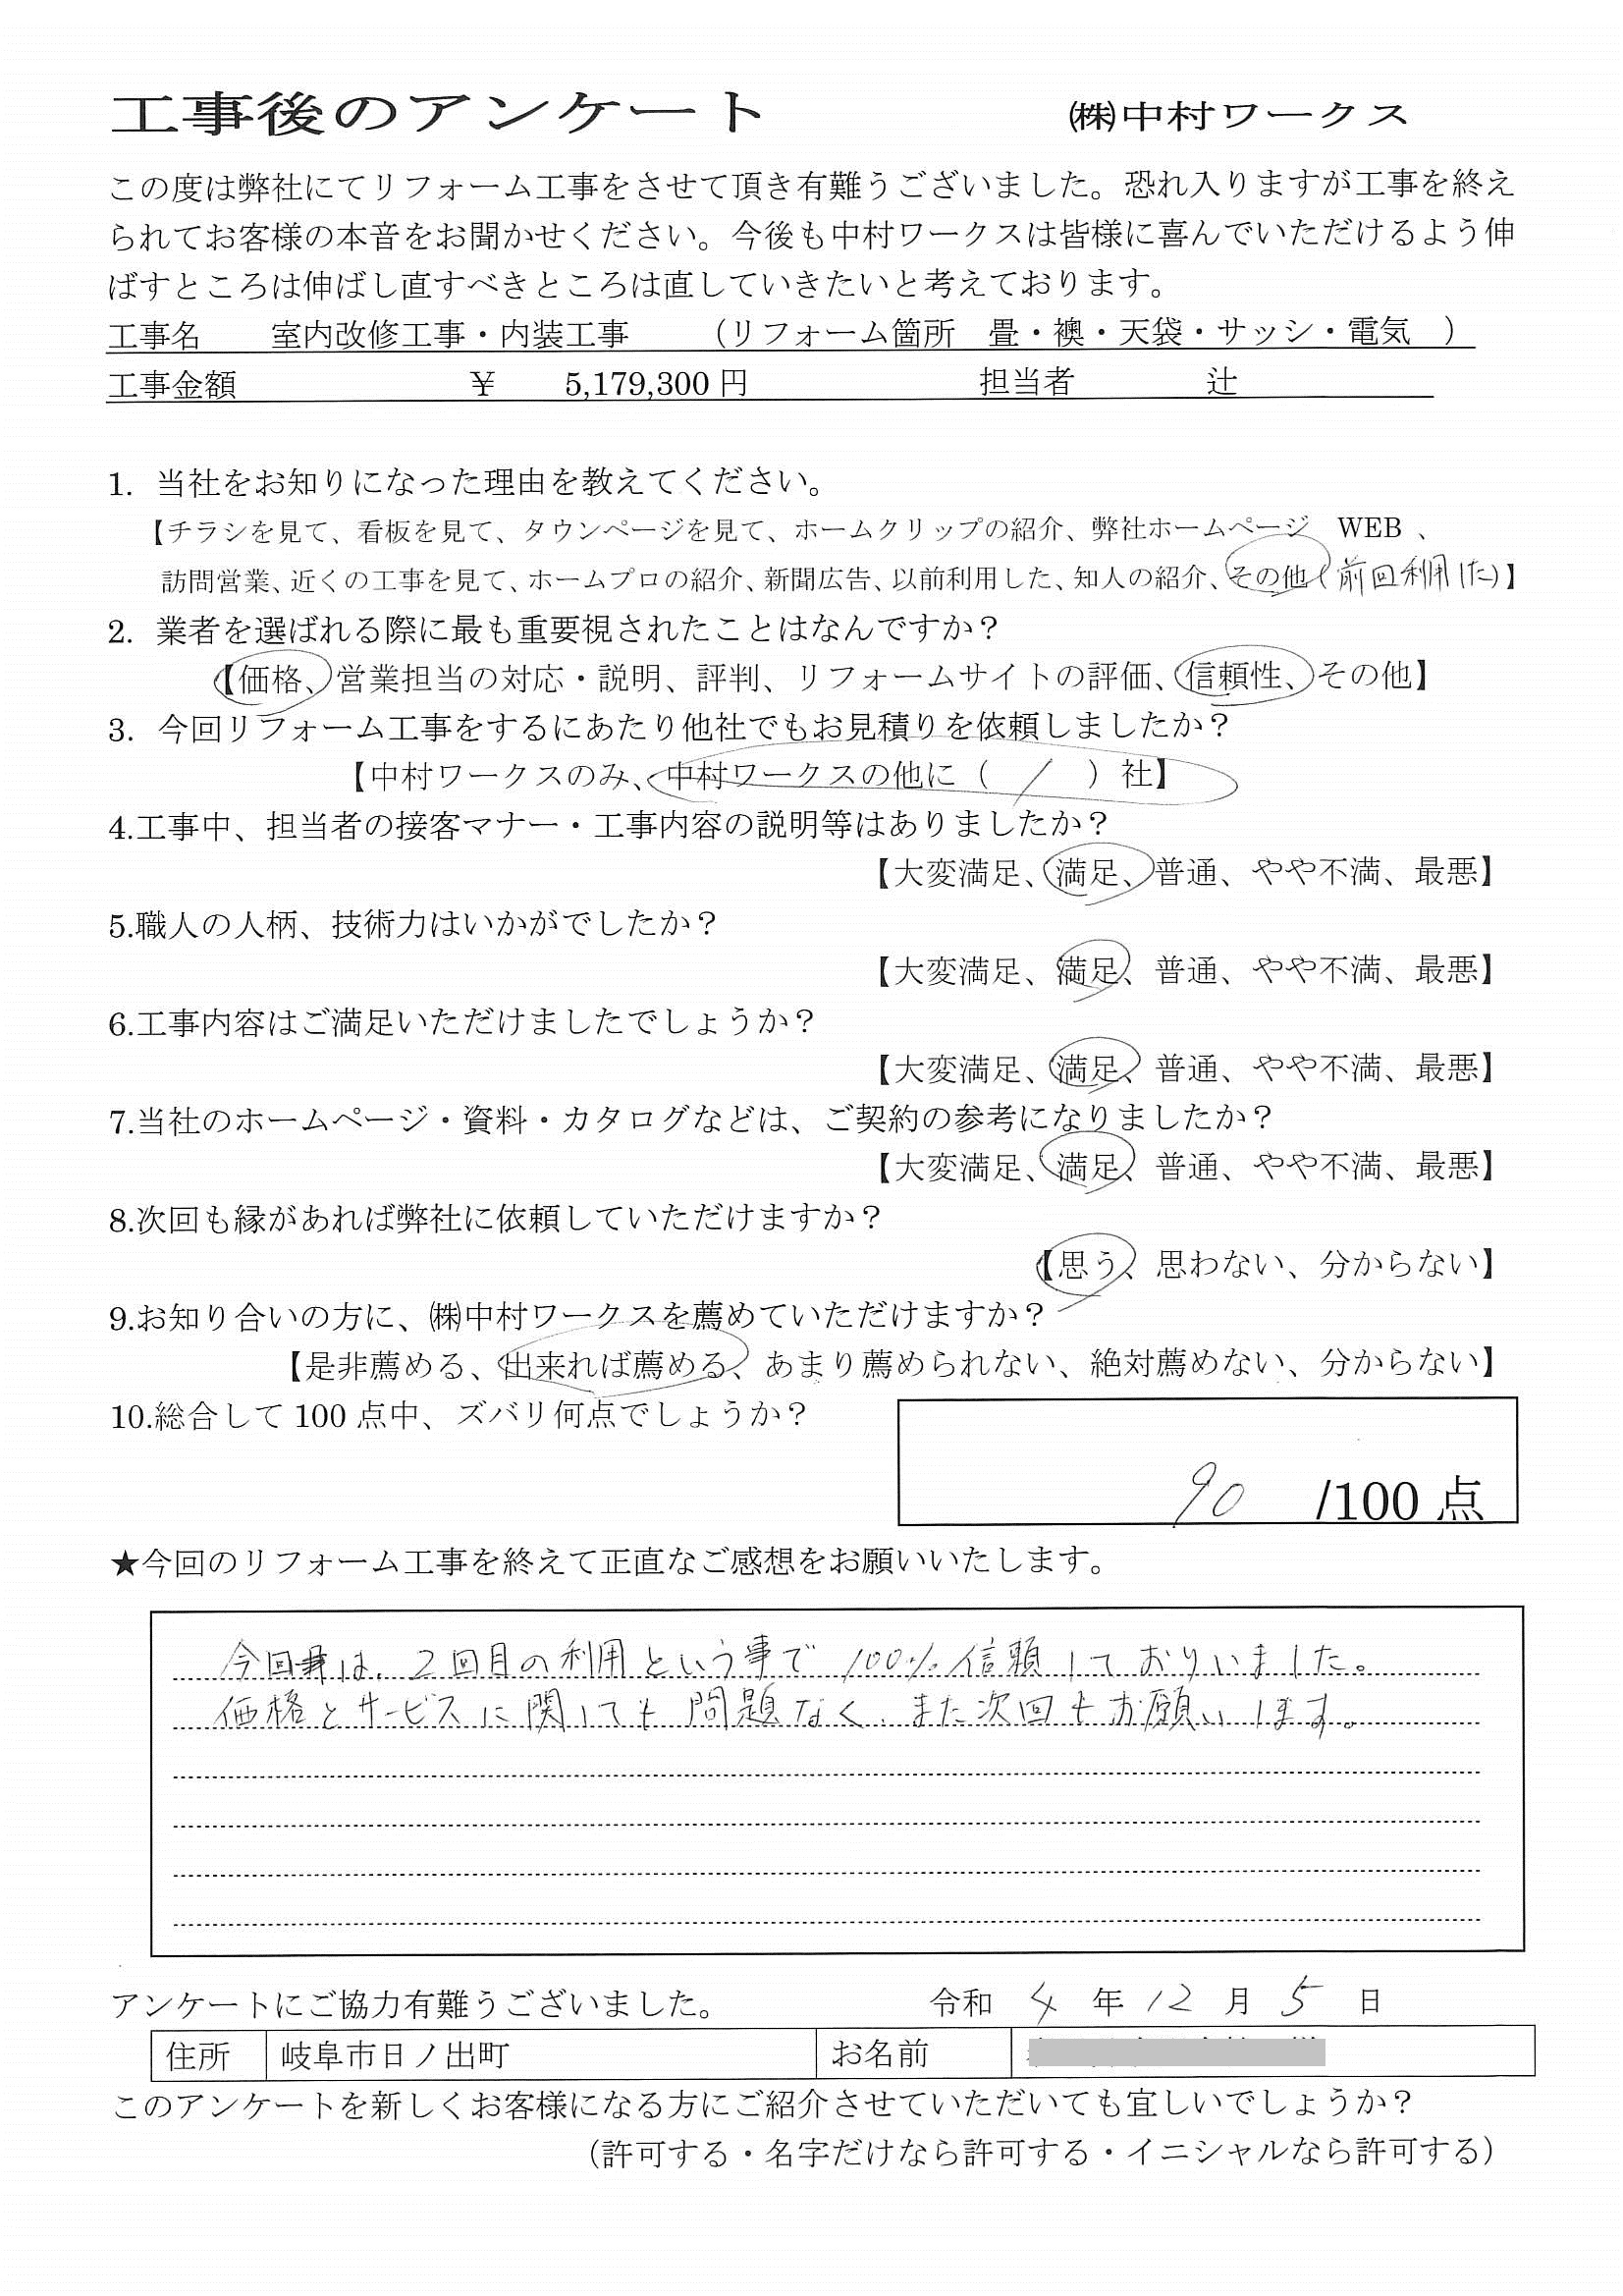 工事後のアンケート　㈱中村ワークス
この度は弊社にてリフォーム工事をさせて頂き有難うございました。恐れ入りますが工事を終え
られてお客様の本音をお聞かせください。今後も中村ワークスは皆様に喜んでいただけるよう伸
ばすところは伸ばし直すべきところは直していきたいと考えております。
工事名　室内改修工事・内装工事　（リフォーム箇所　畳・襖・天袋・サッシ・電気　）
工事金額　¥　5,179,300 円　担当者　辻
1. 当社をお知りになった理由を教えてください。
【チラシを見て、看板を見て、タウンページを見て、ホームクリップの紹介、弊社ホームページ　WEB 、
訪問営業、近くの工事を見て、ホームプロの紹介、新聞広告、以前利用した、知人の紹介、その他（前回利用した）】
2. 業者を選ばれる際に最も重要視されたことはなんですか？
【価格、営業担当の対応・説明、評判、リフォームサイトの評価、信頼性、その他】
3. 今回リフォーム工事をするにあたり他社でもお見積りを依頼しましたか？
【中村ワークスのみ、中村ワークスの他に（　/　）社】
4.工事中、担当者の接客マナー・工事内容の説明等はありましたか？
【大変満足、満足、普通、やや不満、最悪】
5.職人の人柄、技術力はいかがでしたか？
【大変満足、満足、普通、やや不満、最悪】
6.工事内容はご満足いただけましたでしょうか？
【大変満足、満足、普通、やや不満、最悪】
7.当社のホームページ・資料・カタログなどは、ご契約の参考になりましたか？
【大変満足、満足、普通、やや不満、最悪】
8.次回も縁があれば弊社に依頼していただけますか？
【思う、思わない、分からない】
9.お知り合いの方に、㈱中村ワークスを薦めていただけますか？
【是非薦める、出来れば薦める、あまり薦められない、絶対薦めない、分からない】
10.総合して 100 点中、ズバリ何点でしょうか？
90　/100 点
★今回のリフォーム工事を終えて正直なご感想をお願いいたします。
今回は、2回目の利用という事で 100% 信頼しておりいました。
価格とサービスに関しても問題なく、また次回もお願いします。
アンケートにご協力有難うございました。　令和 4 年 12 月 5 日
住所　岐阜市日ノ出町　お名前
このアンケートを新しくお客様になる方にご紹介させていただいても宜しいでしょうか？
（許可する・名字だけなら許可する・イニシャルなら許可する）